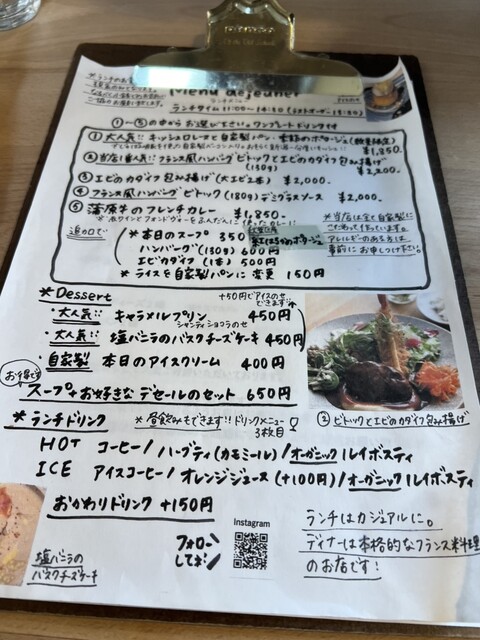 Menu déjeuner
ランチメニュー
ランチタイム 11:00〜14:30 (ラストオーダー 13:30)
①〜⑤の中からお選び下さい。ワンプレートドリンク付
① 大人気!! キッシュロレーヌと自家製パン・季節のポタージュ(数量限定)
¥1,850.
② 当店1番人気!! フランス風ハンバーグ ビトックとエビのカダイフ包み揚げ
(130g) ¥2,200.
③ エビのカダイフ包み揚げ(大エビ2本) ¥2,000.
④ フランス風ハンバーグ ビトック (180g) デミグラスソース ¥2,000.
⑤ 蒲原亭のフレンチカレー ¥1,850.
追加で
*本日のスープ 350
紅はるかのポタージュ
ハンバーグ(130g) 600円
エビカダイフ (1本) 500円
*ライスを自家製パンに変更 150円
*当店は全て自家製に
こだわって作っています。
アレルギーのある方は
事前にお申しつけ下さい。
*Dessert
+50円でアイスのせ
できます!!
・大人気!! キャラメルプリン 450円
シャンティショコラのせ
・大人気!! 塩バニラのバスクチーズケーキ 450円
・自家製 本日のアイスクリーム 400円
お得です
スープ+お好きなデセールのセット 650円
② ビトックとエビのカダイフ包み揚げ
*ランチドリンク
*昼飲みもできます!! ドリンクメニュー
3枚目
HOT コーヒー/ハーブティ(カモミール)/オーガニックルイボスティ
ICE アイスコーヒー/オレンジジュース(+100円)/オーガニックルイボスティ
おかわりドリンク +150円
塩バニラの
バスクチーズケーキ
フォロー
してネ!
Instagram
ランチはカジュアルに。
ディナーは本格的なフランス料理
のお店です!